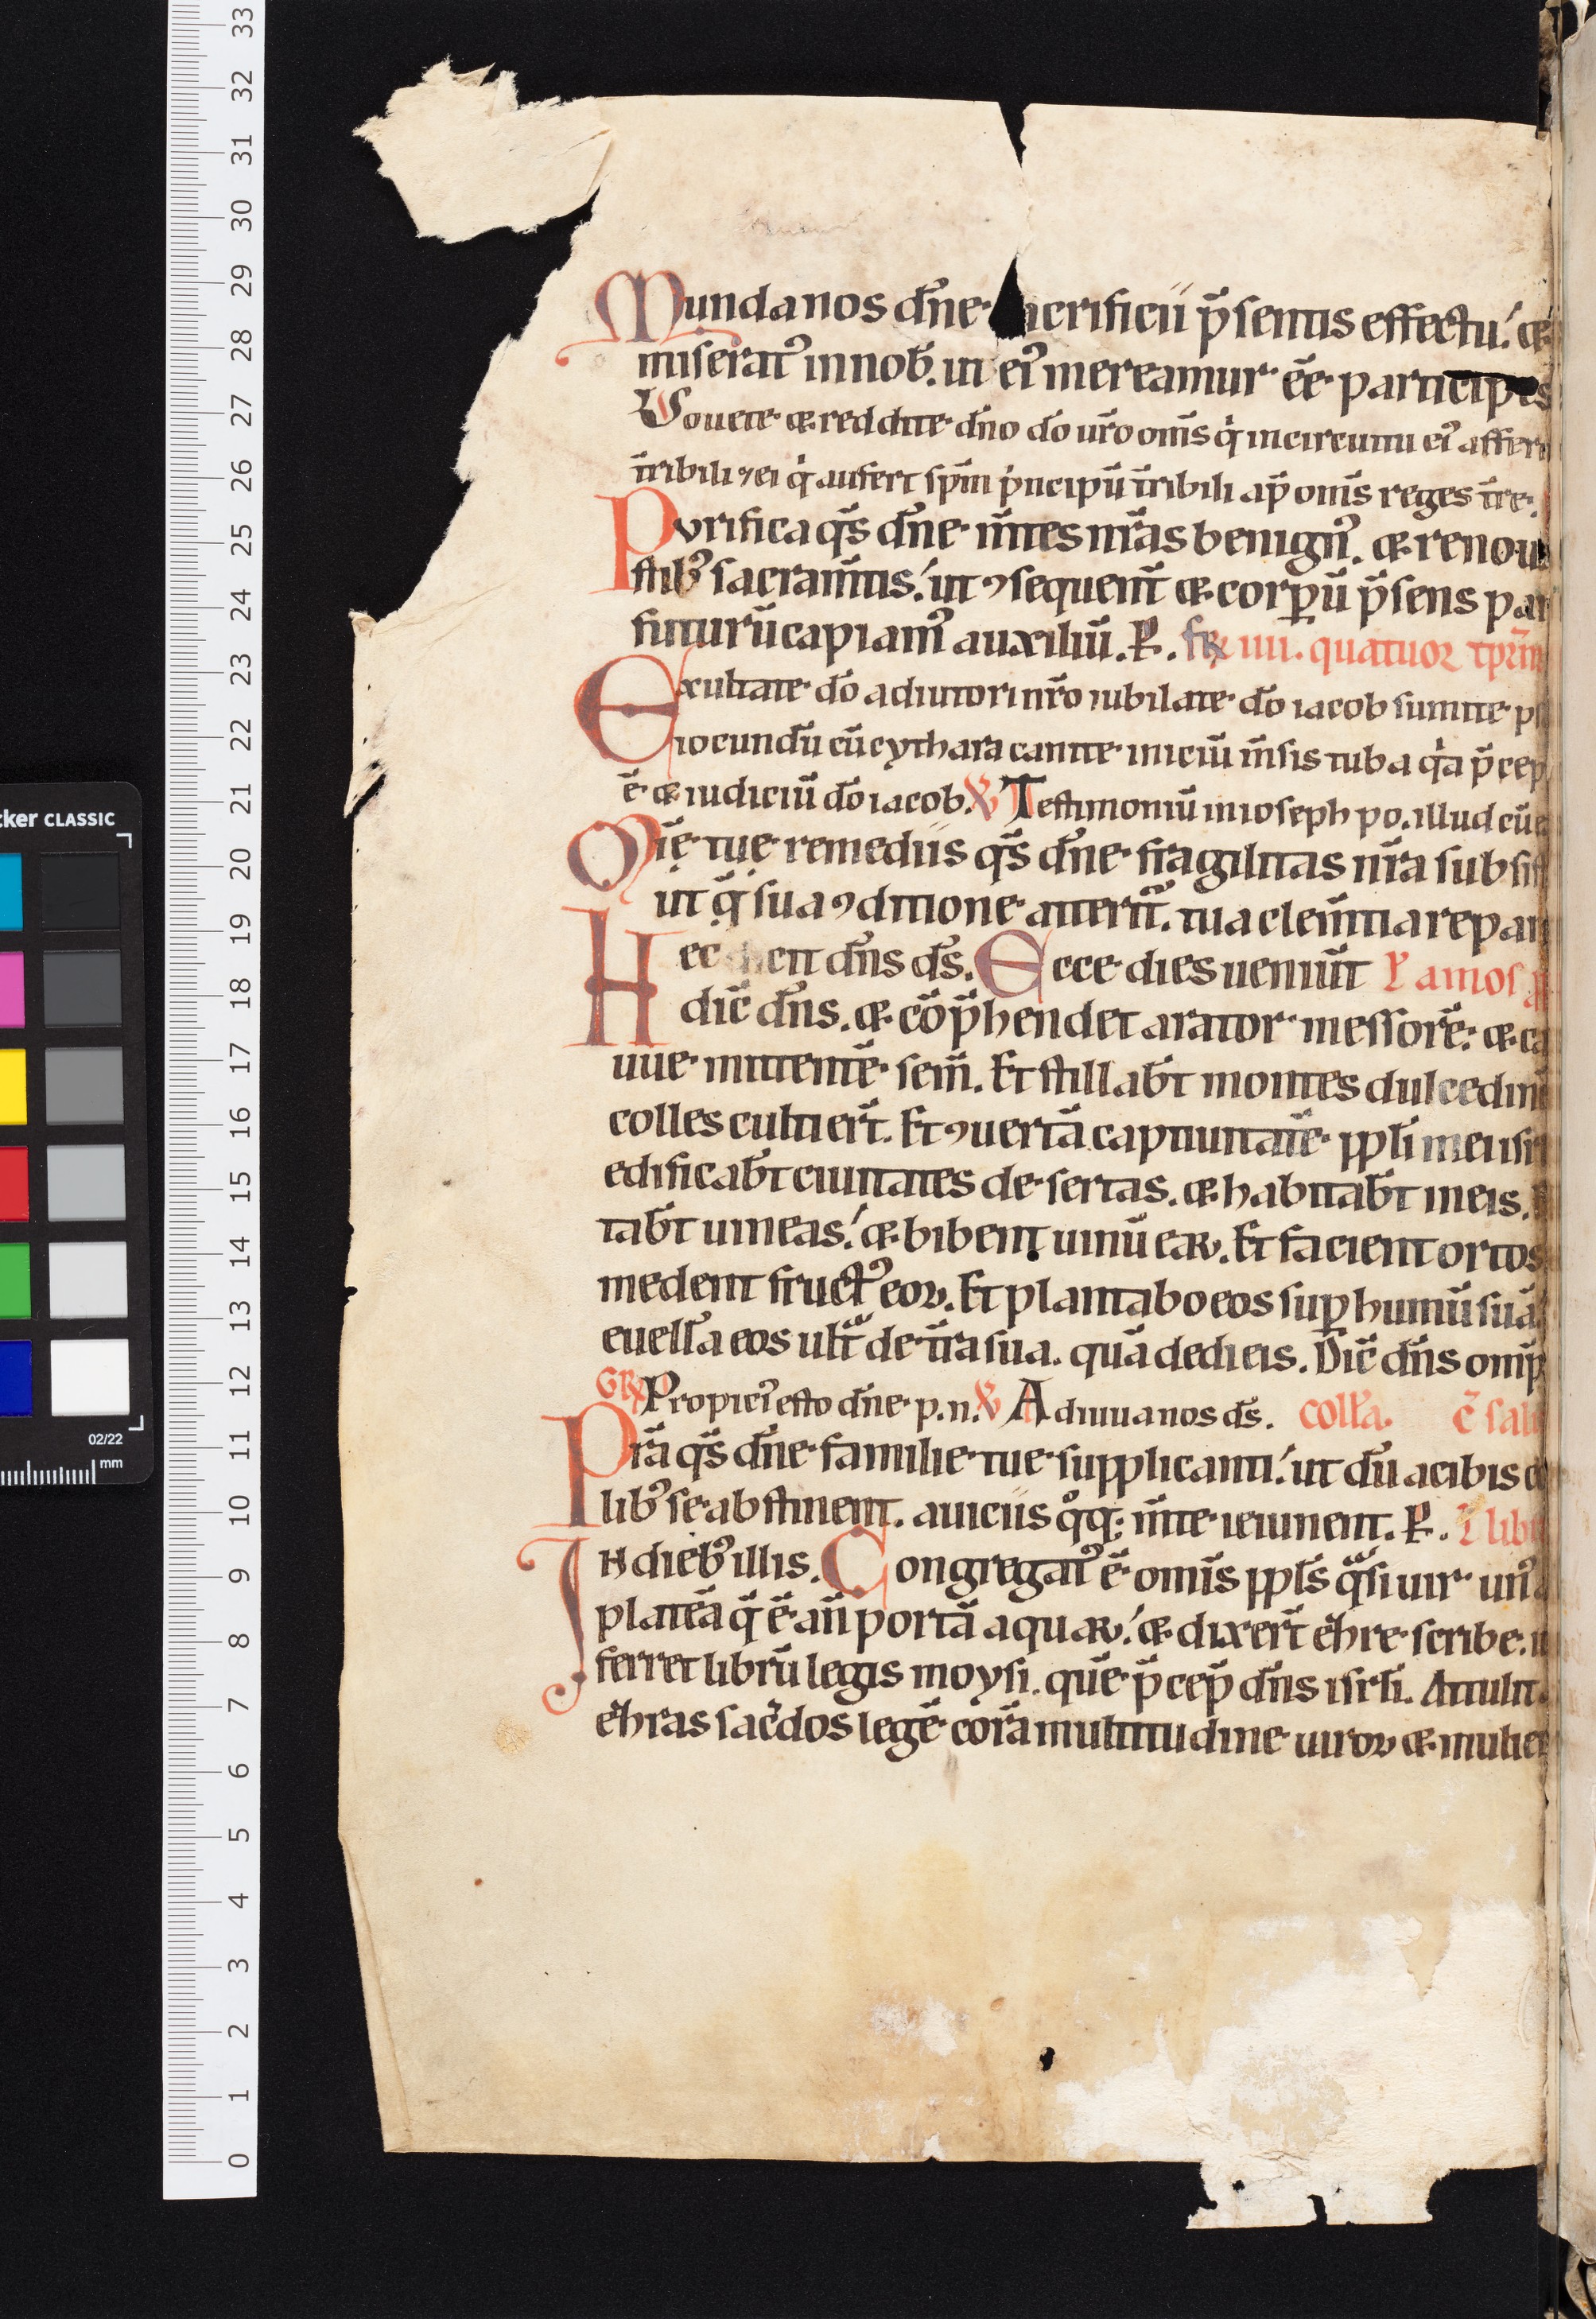 Munda nos dn̄e· acrificii p̄sentis effectu. ⁊
miserat᷒ in nob̄. ut ei᷒ mereamur ēē participes
Vouete ⁊ reddite dn̄o dō ur̄o om̄s q̇ in circuitu ei᷒ affer
tr̄ibili ⁊ ei q̇ aufert sp̄m ṗncipū tr̄ibili ap̄ om̄s reges tr̄e.
Purifica q̄s dn̄e m̄tes nr̄as benign᷒. ⁊ renou
stib᷒ sacram̄tis. ut ꝯsequent̄ ⁊ corꝑū p̄sens par
futurū capiam᷒ auxiliū. P̱. fr̄ iiii. quatuor tp̄rm
Exultate dō adiutori nr̄o iubilate dō iacob sumite ps
iocundū cū cythara canite iniciū m̄sis tuba q̇a p̄cep
ē ⁊ iudiciū dō iacob. V̄ Testimoniū in ioseph po. illud cū e
Mīę tuę remediis q̄s dn̄e fragilitas nr̄a subsist
ut q̄ sua ꝯditione atterit̄. tua clem̄tia repar
Hec dn̄s ds̄. Ecce dies ueniūt P̱ amos
dic̄ dn̄s. ⁊ cōp̄hendet arator messorē. ⁊ ca
uue mittentē sem̄. Et stillab̄t montes dulcedinē
colles culti er̄t. Et ꝯuertā captiuitatē ppl̄i mei isr
edificab̄t ciuitates desertas. ⁊ habitab̄t in eis.
tab̄t uineas. ⁊ bibent uinū eaꝝ. Et facient ortos
medent fruct᷒ eoꝝ. Et plantabo eos suꝑ humū suā
euell̄a eos ult̄ de tr̄a sua. quā dedi eis. Dic̄ dn̄s om̄p
GR Propici᷒ esto dn̄e p. n. V̄ Adiuua nos ds̄. coll̄a. c̄ sal
Pr̄a q̄s dn̄e familie tue supplicanti. ut dū a cibis c
lib᷒ se abstinent. a uiciis q̊q; m̄te ieiunent. P̱. ī lib
In dieb᷒ illis. Congregat᷒ ē om̄is ppl̄s q̄si uir un᷒
plateā q̄ ē an̄ portā aquaꝝ. ⁊ dixer̄t eh̄re scribe. u
ferret librū legis moysi. quē p̄cep̄ dn̄s isrl̄i. Attulit
eh̄ras sac̄dos legē corā multitudine uiroꝝ ⁊ mulier